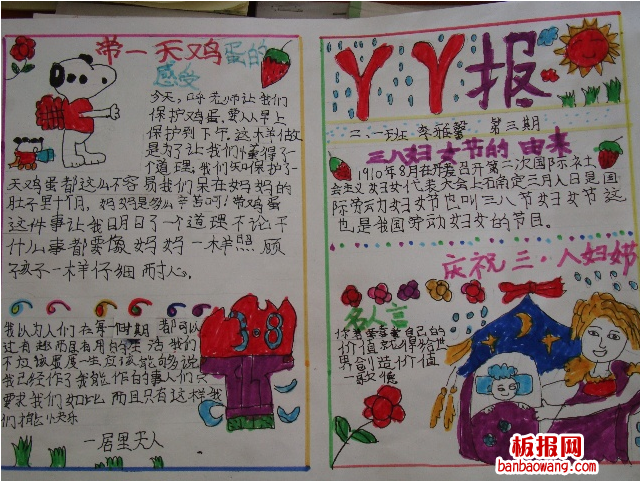 带一天鸡蛋的
感受
今天,呼老师让我们
保护鸡蛋,要从早上
保护到下午。这样做
是为了让我们懂得了一
个道理:我们只保护了一
天鸡蛋都这么不容易我们呆在妈妈的
肚子里十个月,妈妈是多么辛苦呵!带鸡蛋
这件事让我明白了一个道理不论干
什么事都要像妈妈一样照顾
孩子一样仔细耐心。
我以为人们在每一时期都可以
过有趣而且有用的生活我们
不应该虚度一生应该能够说
我已经作了我能作的事人们只
要求我们如此而且只有这样我
们才能小快乐
一居里夫人
3·8
丫丫报
二、一班 李雅馨 第三期
三八妇女节的由来
1910年8月在丹麦召开第二次国际社
会主义妇女代表大会上
定三月八日是国
际劳动妇女节也叫三八节妇女节这
也是我国劳动妇女的节日。
庆祝三·八妇节
名人言
你若要喜爱自己的
价值就得给世
界创造价值
一歌德
板报网
banbaowang.com